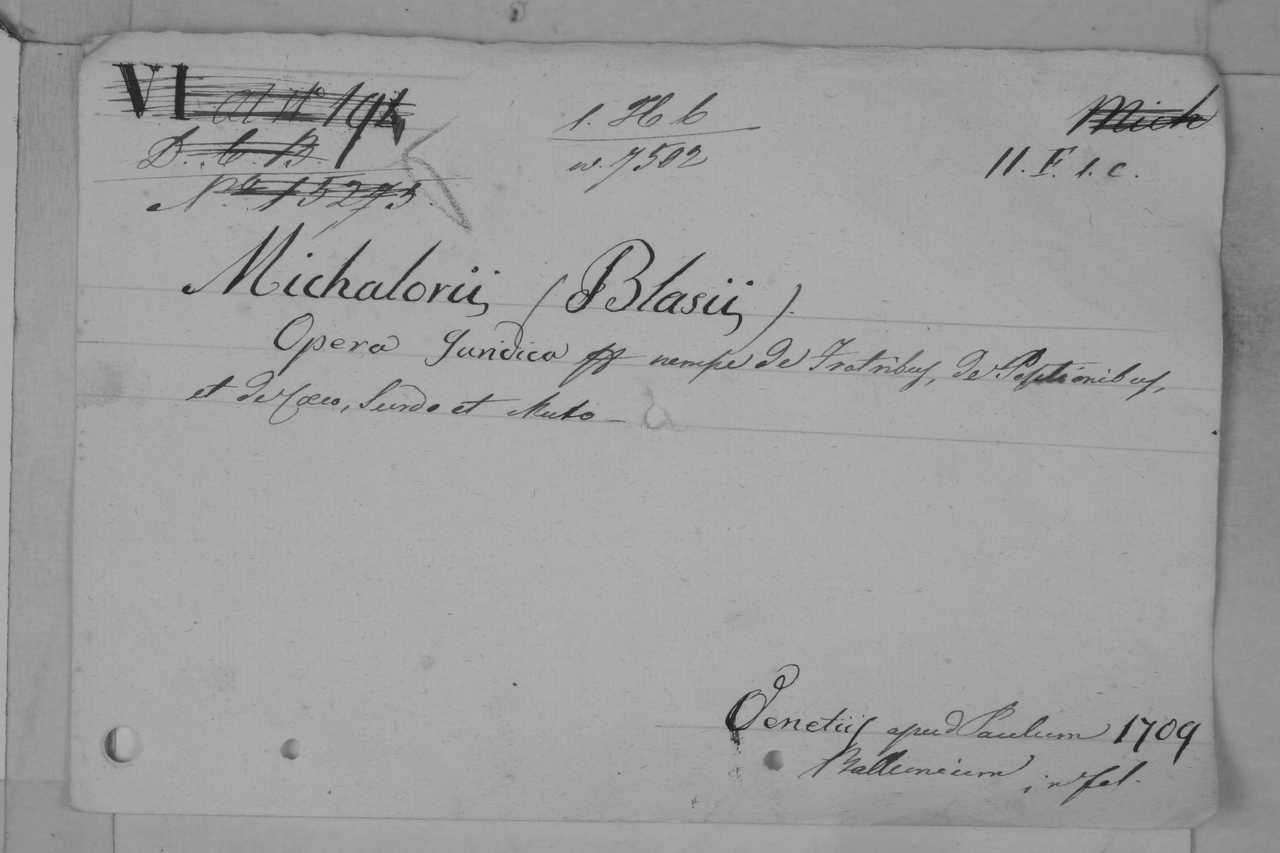 VI at N° 194
D. C. B.
N° 15275.
1. H b
w. 7502
Mich
11. F. 1. c.
Michalorii, (Blasii,).
Opera Juridica nempe de Fratribus, de Positionibus,
et de Cœco, Surdo et Muto
Venetiis apud Paulum 1709
Balleonium in fol.